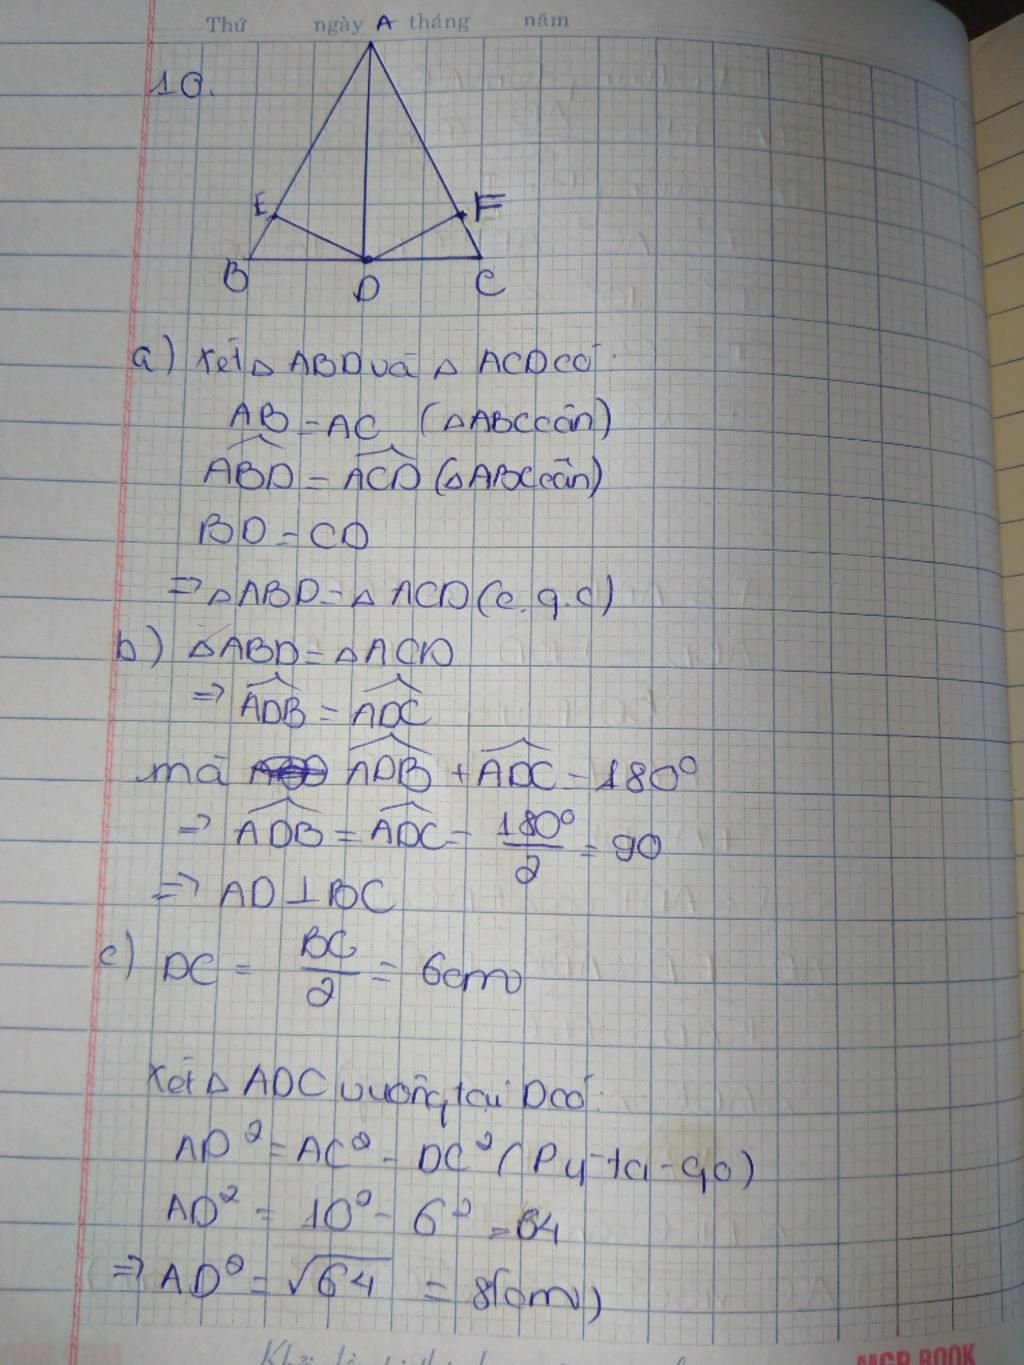 Thứ ngày tháng năm
A
10.
E F
B D C
a) Xét △ ABD và △ ACD có:
AB = AC (△ABC cân)
ABD = ACD (△ABC cân)
BD = CD
=> △ABD = △ ACD (c.g.c)
b) △ABD = △ACD
=> ADB = ADC
mà ADB + ADC = 180°
=> ADB = ADC = 180°/2 = 90
=> AD ⊥ BC
c) DC = BC/2 = 6cm
Xét △ ADC vuông tại D có:
AD² = AC² - DC² (Py-ta-go)
AD² = 10² - 6² = 64
=> AD² = √64 = 8(cm)
MGR BOOK